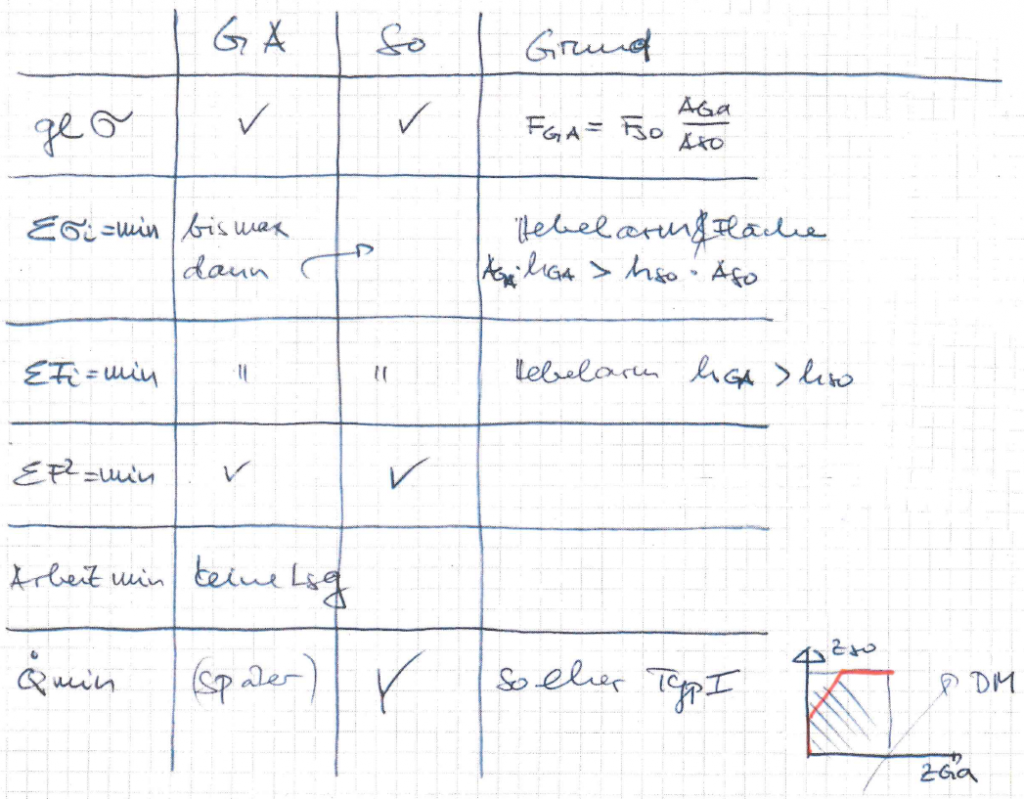 GA So Grund
gl σ ✓ ✓ F_GA = F_SO A_Ga/A_SO
Σσi=min bis max Hebelarm & Fläche
dann → A_GA·h_GA > h_SO · A_SO
ΣFi=min " " Hebelarm h_GA > h_SO
ΣF²=min ✓ ✓
Arbeit min keine Lsg
Q̇ min (später) ✓ So eher Typ I
z_SO
DM
z_Ga